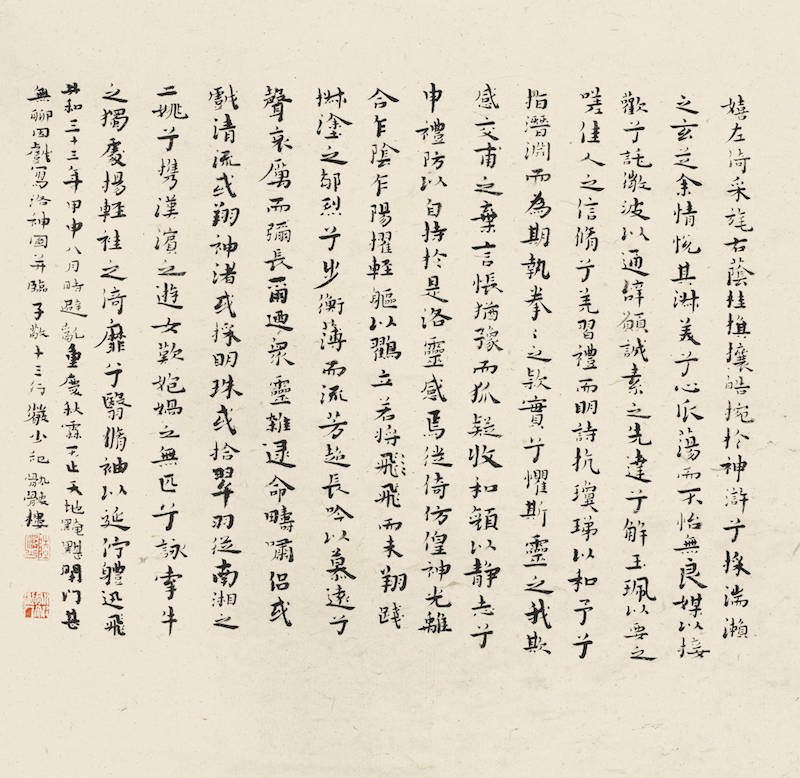 嬉左倚采旄右蔭桂旗攘皓捥於神滸兮採湍瀨
之玄芝余情悅其淑美兮心振蕩而不怡無良媒以接
歡兮託微波以通辭願誠素之先達兮解玉珮以要之
嗟佳人之信脩兮羌習禮而明詩抗瓊珶以和予兮
指潛淵而為期執拳〻之欵實兮懼斯靈之我欺
感交甫之棄言悵猶豫而狐疑收和顏以靜志兮
申禮防以自持於是洛靈感焉徙倚仿偟神光離
合乍陰乍陽擢輕軀以鶴立若將飛飛而未翔踐
椒塗之郁烈兮步衡薄而流芳超長吟以慕遠兮
聲哀厲而彌長爾迺衆靈雜遝命疇嘯侶或
戲清流或翔神渚或採明珠或拾翠羽從南湘之
二姚兮攜漢濱之遊女歎炮媧之無匹兮詠牽牛
之獨處揚輕袿之猗靡兮翳脩袖以延佇軆迅飛
共和三十三年甲申八月時避亂重慶秋霖不止天地黤黮閉門甚
無聊因戲寫洛神圖并臨子敬十三行小記骫骳樓